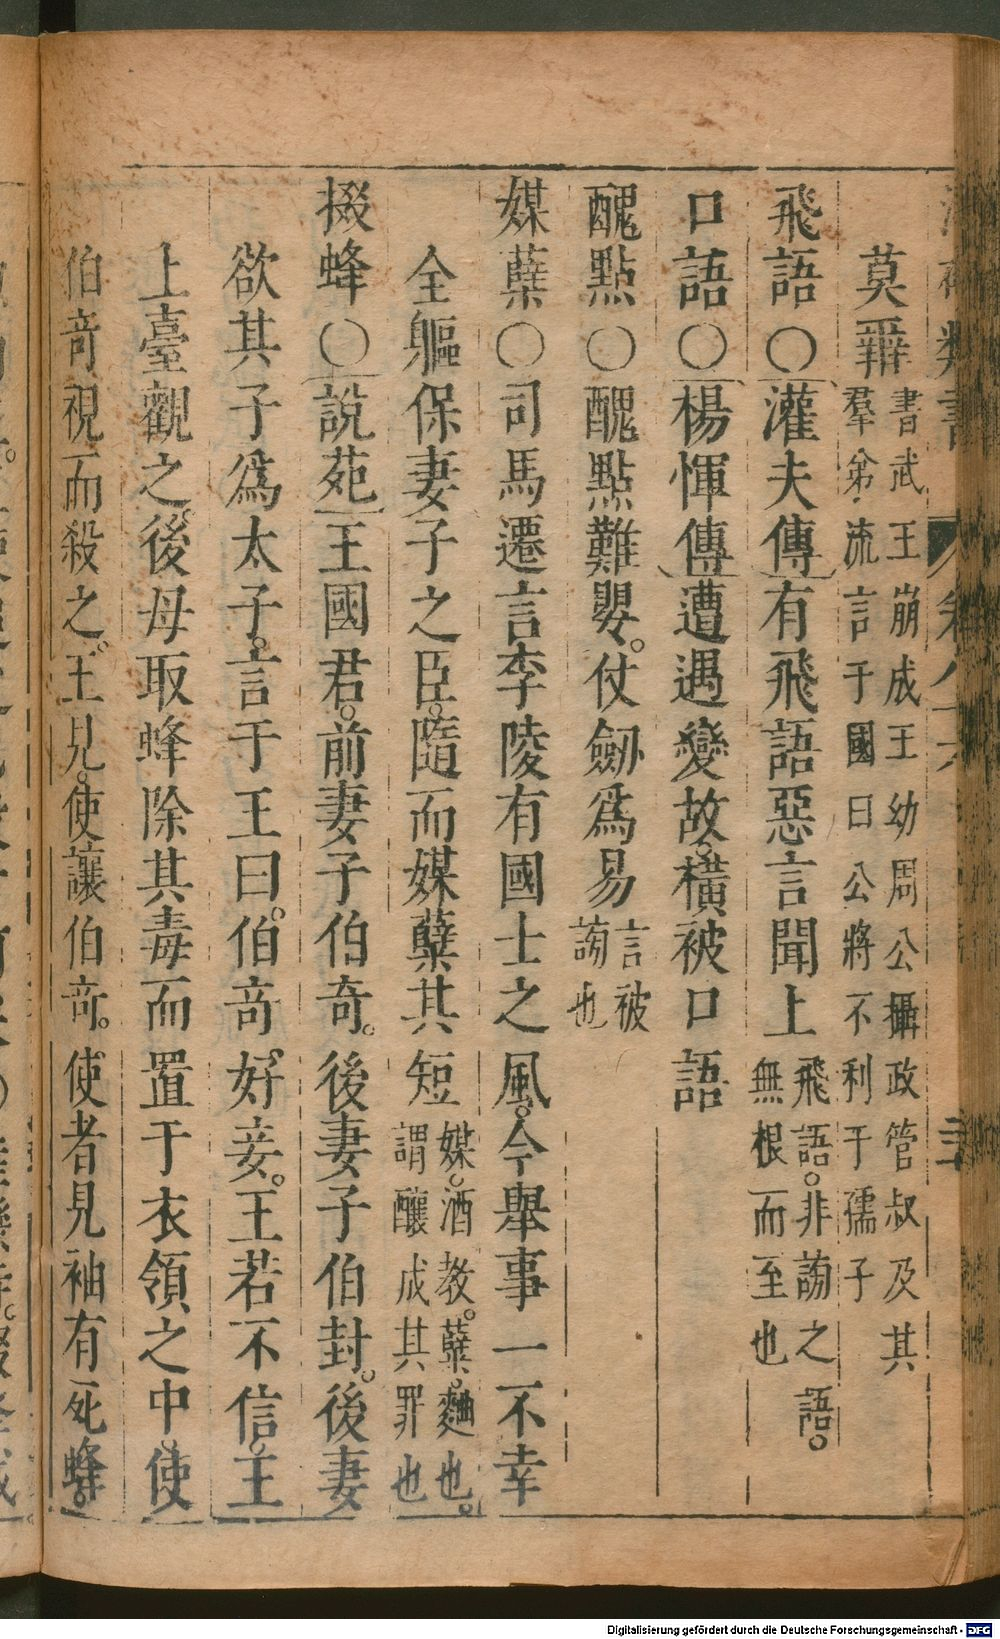 類書
莫辨 書武王崩成王幼周公攝政管叔及其
羣弟流言于國曰公將不利于孺子
飛語〇灌夫傳有飛語惡言聞上 飛語。非謝之語。
無根而至也
口語〇楊惲傳遭遇變故。橫被口語
醜點〇醜點難嬰。仗劒爲易 言被
謗也
媒蘖〇司馬遷言李陵有國士之風。今舉事一不幸
全軀保妻子之臣。隨而媒蘖其短 媒。酒教。蘖。麯也。
謂釀成其罪也
掇蜂〇說苑王國君。前妻子伯奇。後妻子伯封。後妻
欲其子爲太子。言于王曰。伯奇。好妾。王若不信。王
上臺觀之。後母取蜂除其毒而置于衣領之中。使
伯奇視而殺之。王見。使讓伯奇。使者見袖有死蜂。
Digitalisierung gefördert durch die Deutsche Forschungsgemeinschaft - DFG